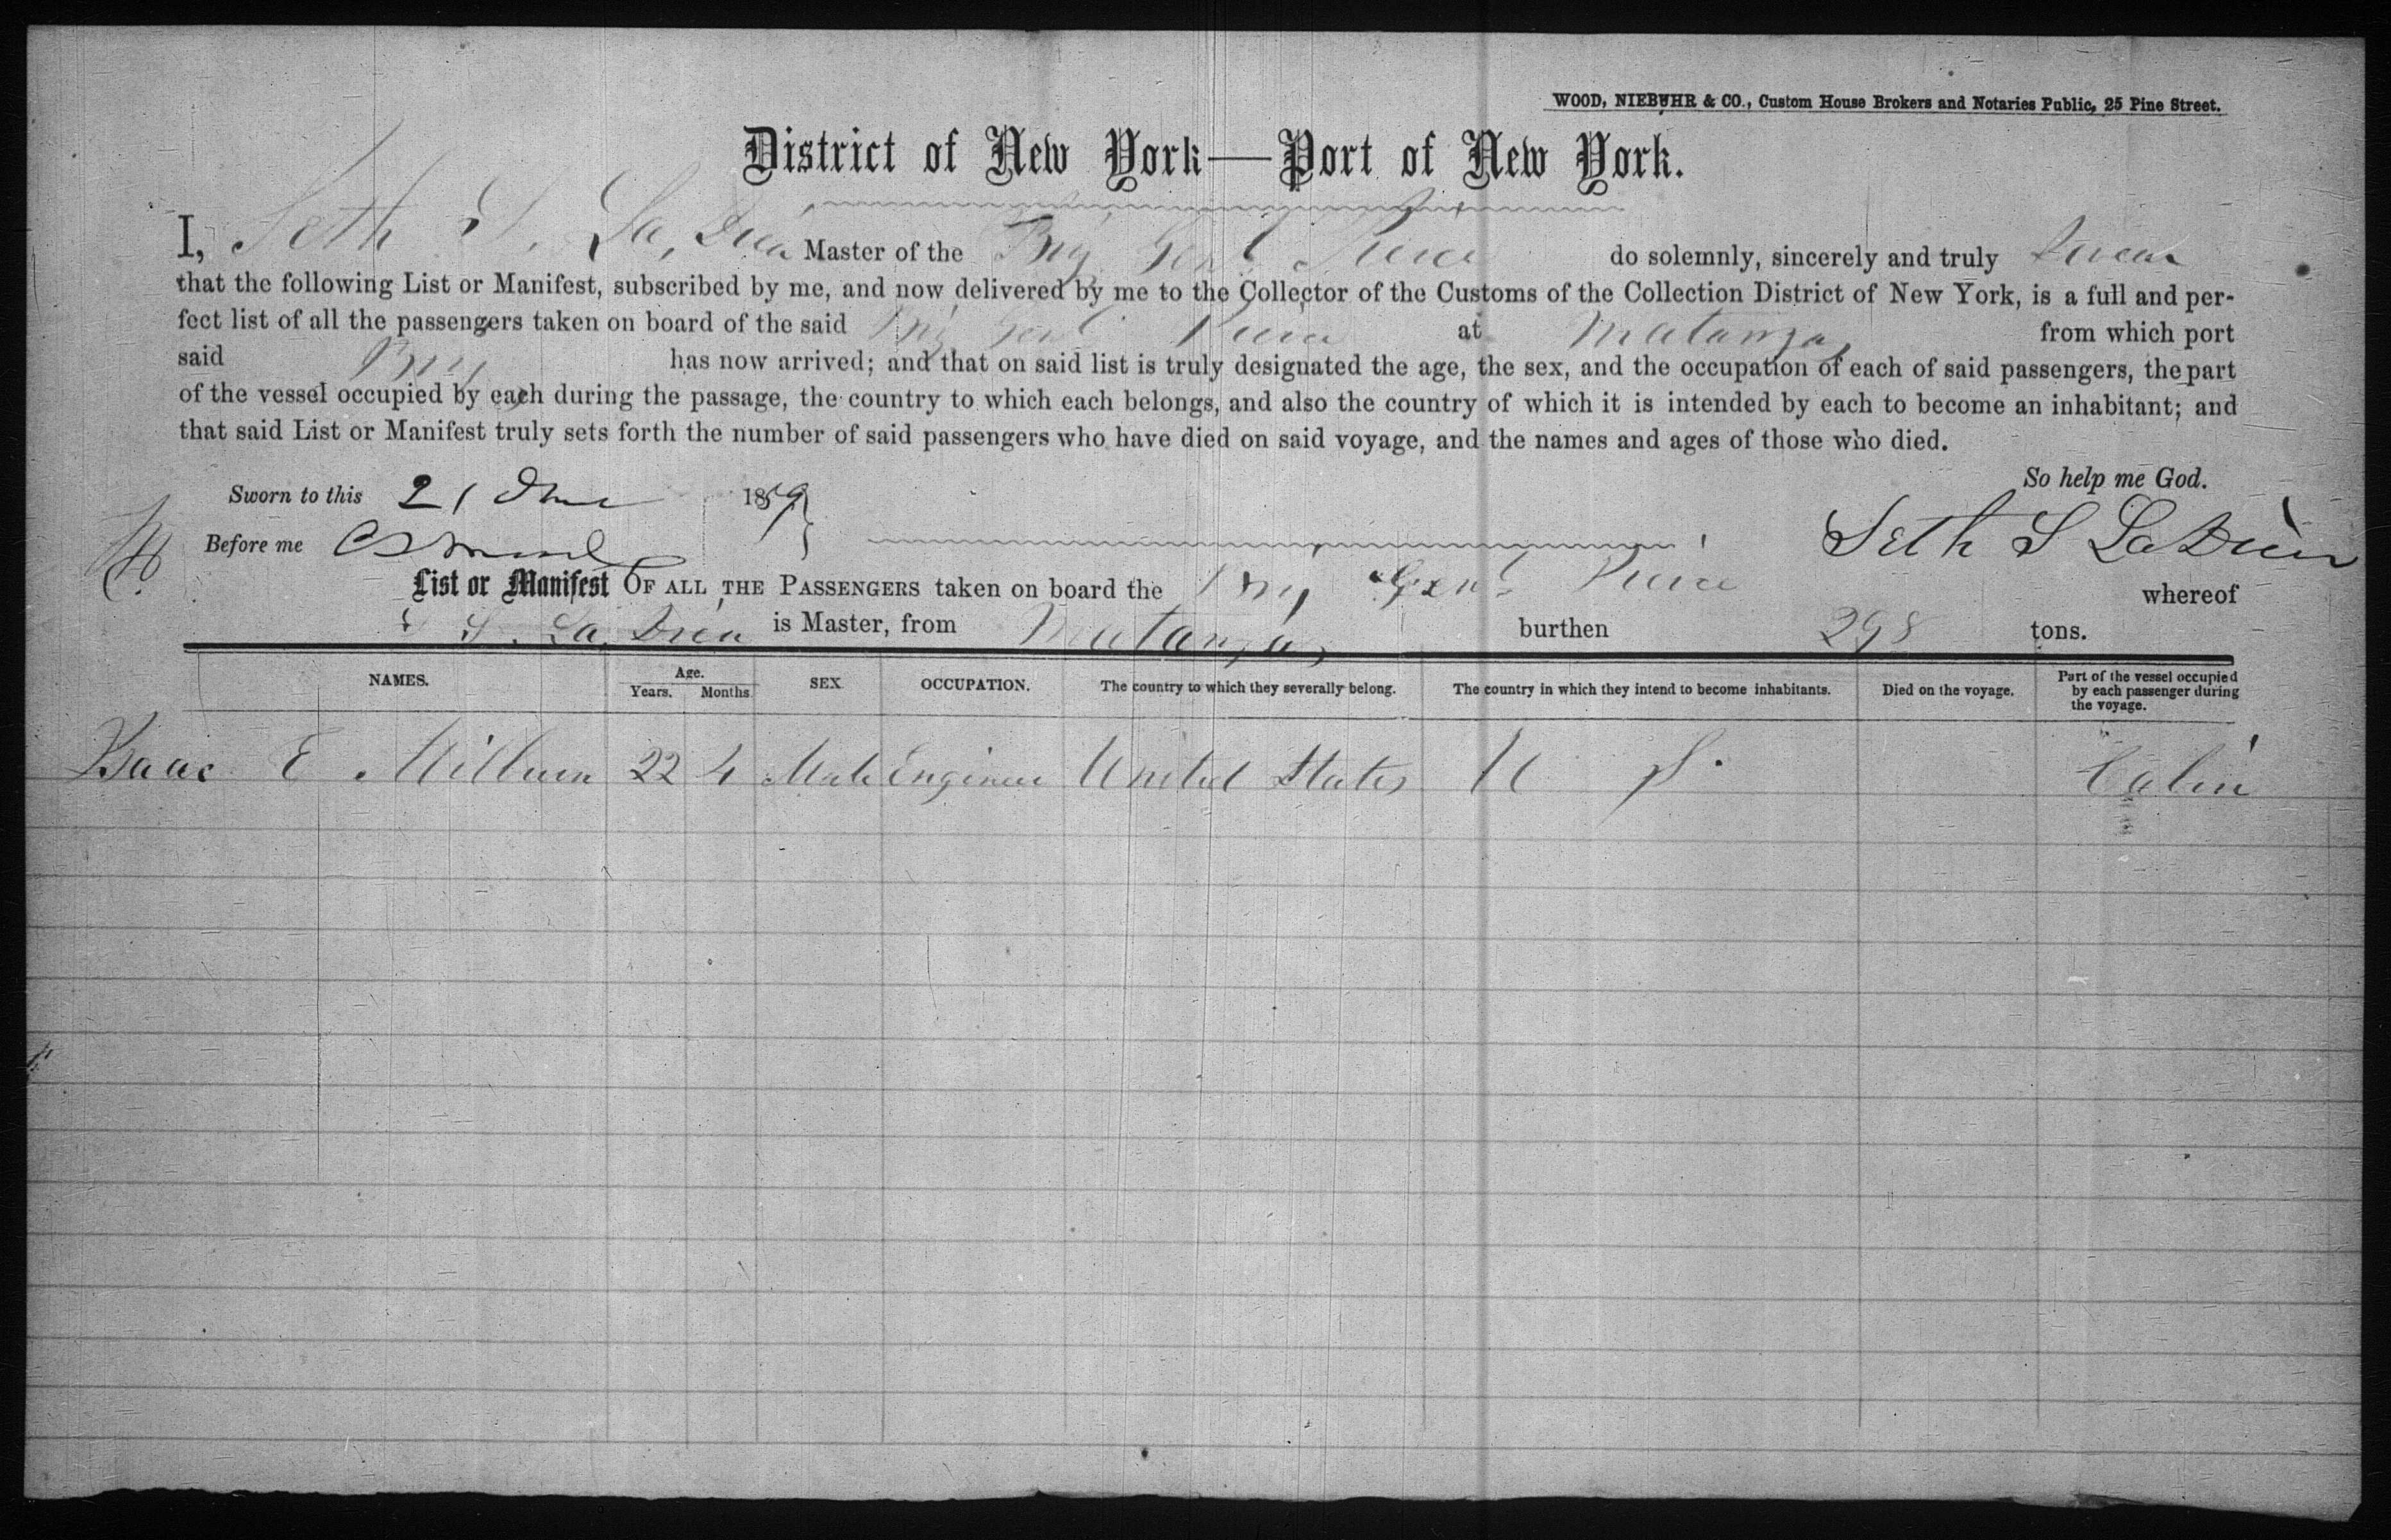 WOOD, NIEBUHR & CO., Custom House Brokers and Notaries Public, 25 Pine Street.
District of New York—Port of New York.
I, Seth S. La, Drew Master of the Brig Genl. Pierce do solemnly, sincerely and truly Swear
that the following List or Manifest, subscribed by me, and now delivered by me to the Collector of the Customs of the Collection District of New York, is a full and per-
fect list of all the passengers taken on board of the said Brig Genl Pierce at Matanzas from which port
said Brig has now arrived; and that on said list is truly designated the age, the sex, and the occupation of each of said passengers, the part
of the vessel occupied by each during the passage, the country to which each belongs, and also the country of which it is intended by each to become an inhabitant; and
that said List or Manifest truly sets forth the number of said passengers who have died on said voyage, and the names and ages of those who died.
So help me God.
Sworn to this 21 June 1859
Before me
Seth S LaDrew
List or Manifest OF ALL THE PASSENGERS taken on board the Brig Genl Pierce whereof
S S. La, Drew is Master, from Matanzas burthen 298 tons.
NAMES. Age. Years. Months. SEX OCCUPATION. The country to which they severally belong. The country in which they intend to become inhabitants. Died on the voyage. Part of the vessel occupied by each passenger during the voyage.
Isaac E Milluen 22 4 Male Engineer United States U S. Cabin